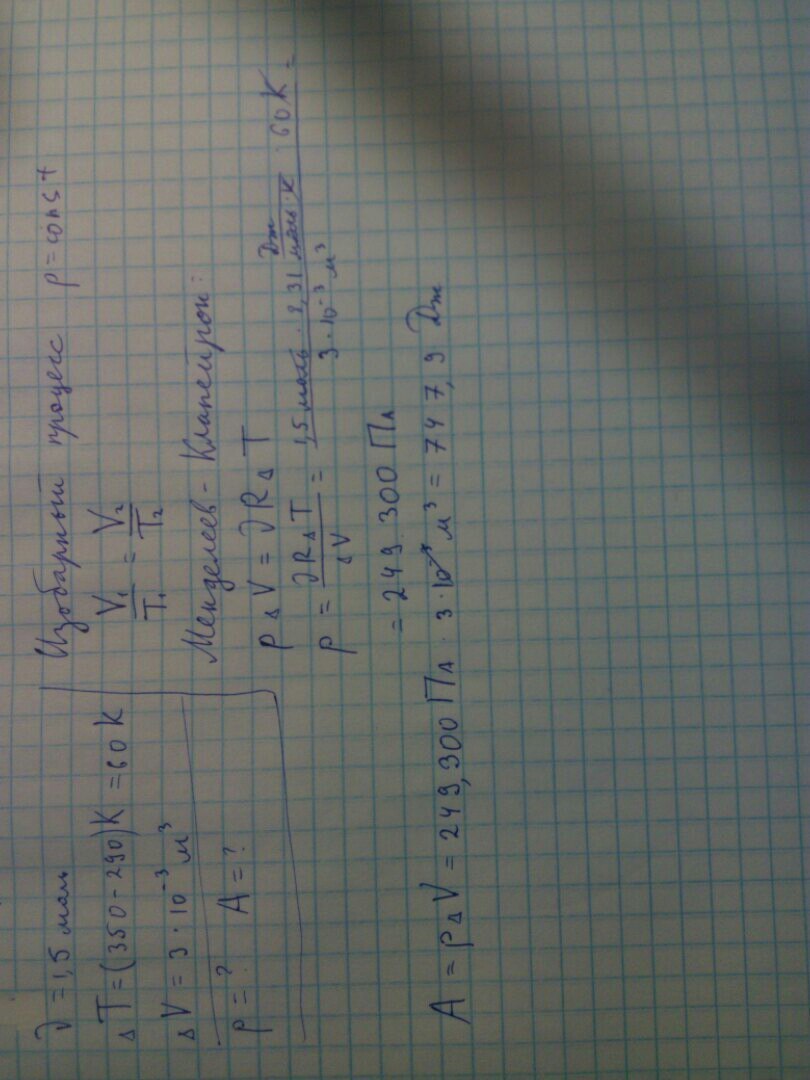 ν = 1,5 моль
ΔT = (350 - 290)K = 60 K
ΔV = 3 · 10⁻³ м³
P = ? A = ?
Изобарный процесс p = const
V₁/T₁ = V₂/T₂
Менделеев - Клапейрон:
PΔV = νRΔT
P = νRΔT/ΔV = 1,5 моль · 8,31 Дж/моль·К · 60 K/3 · 10⁻³ м³ =
= 249 300 Па
A = PΔV = 249,300 Па · 3 · 10⁻³ м³ = 747,9 Дж